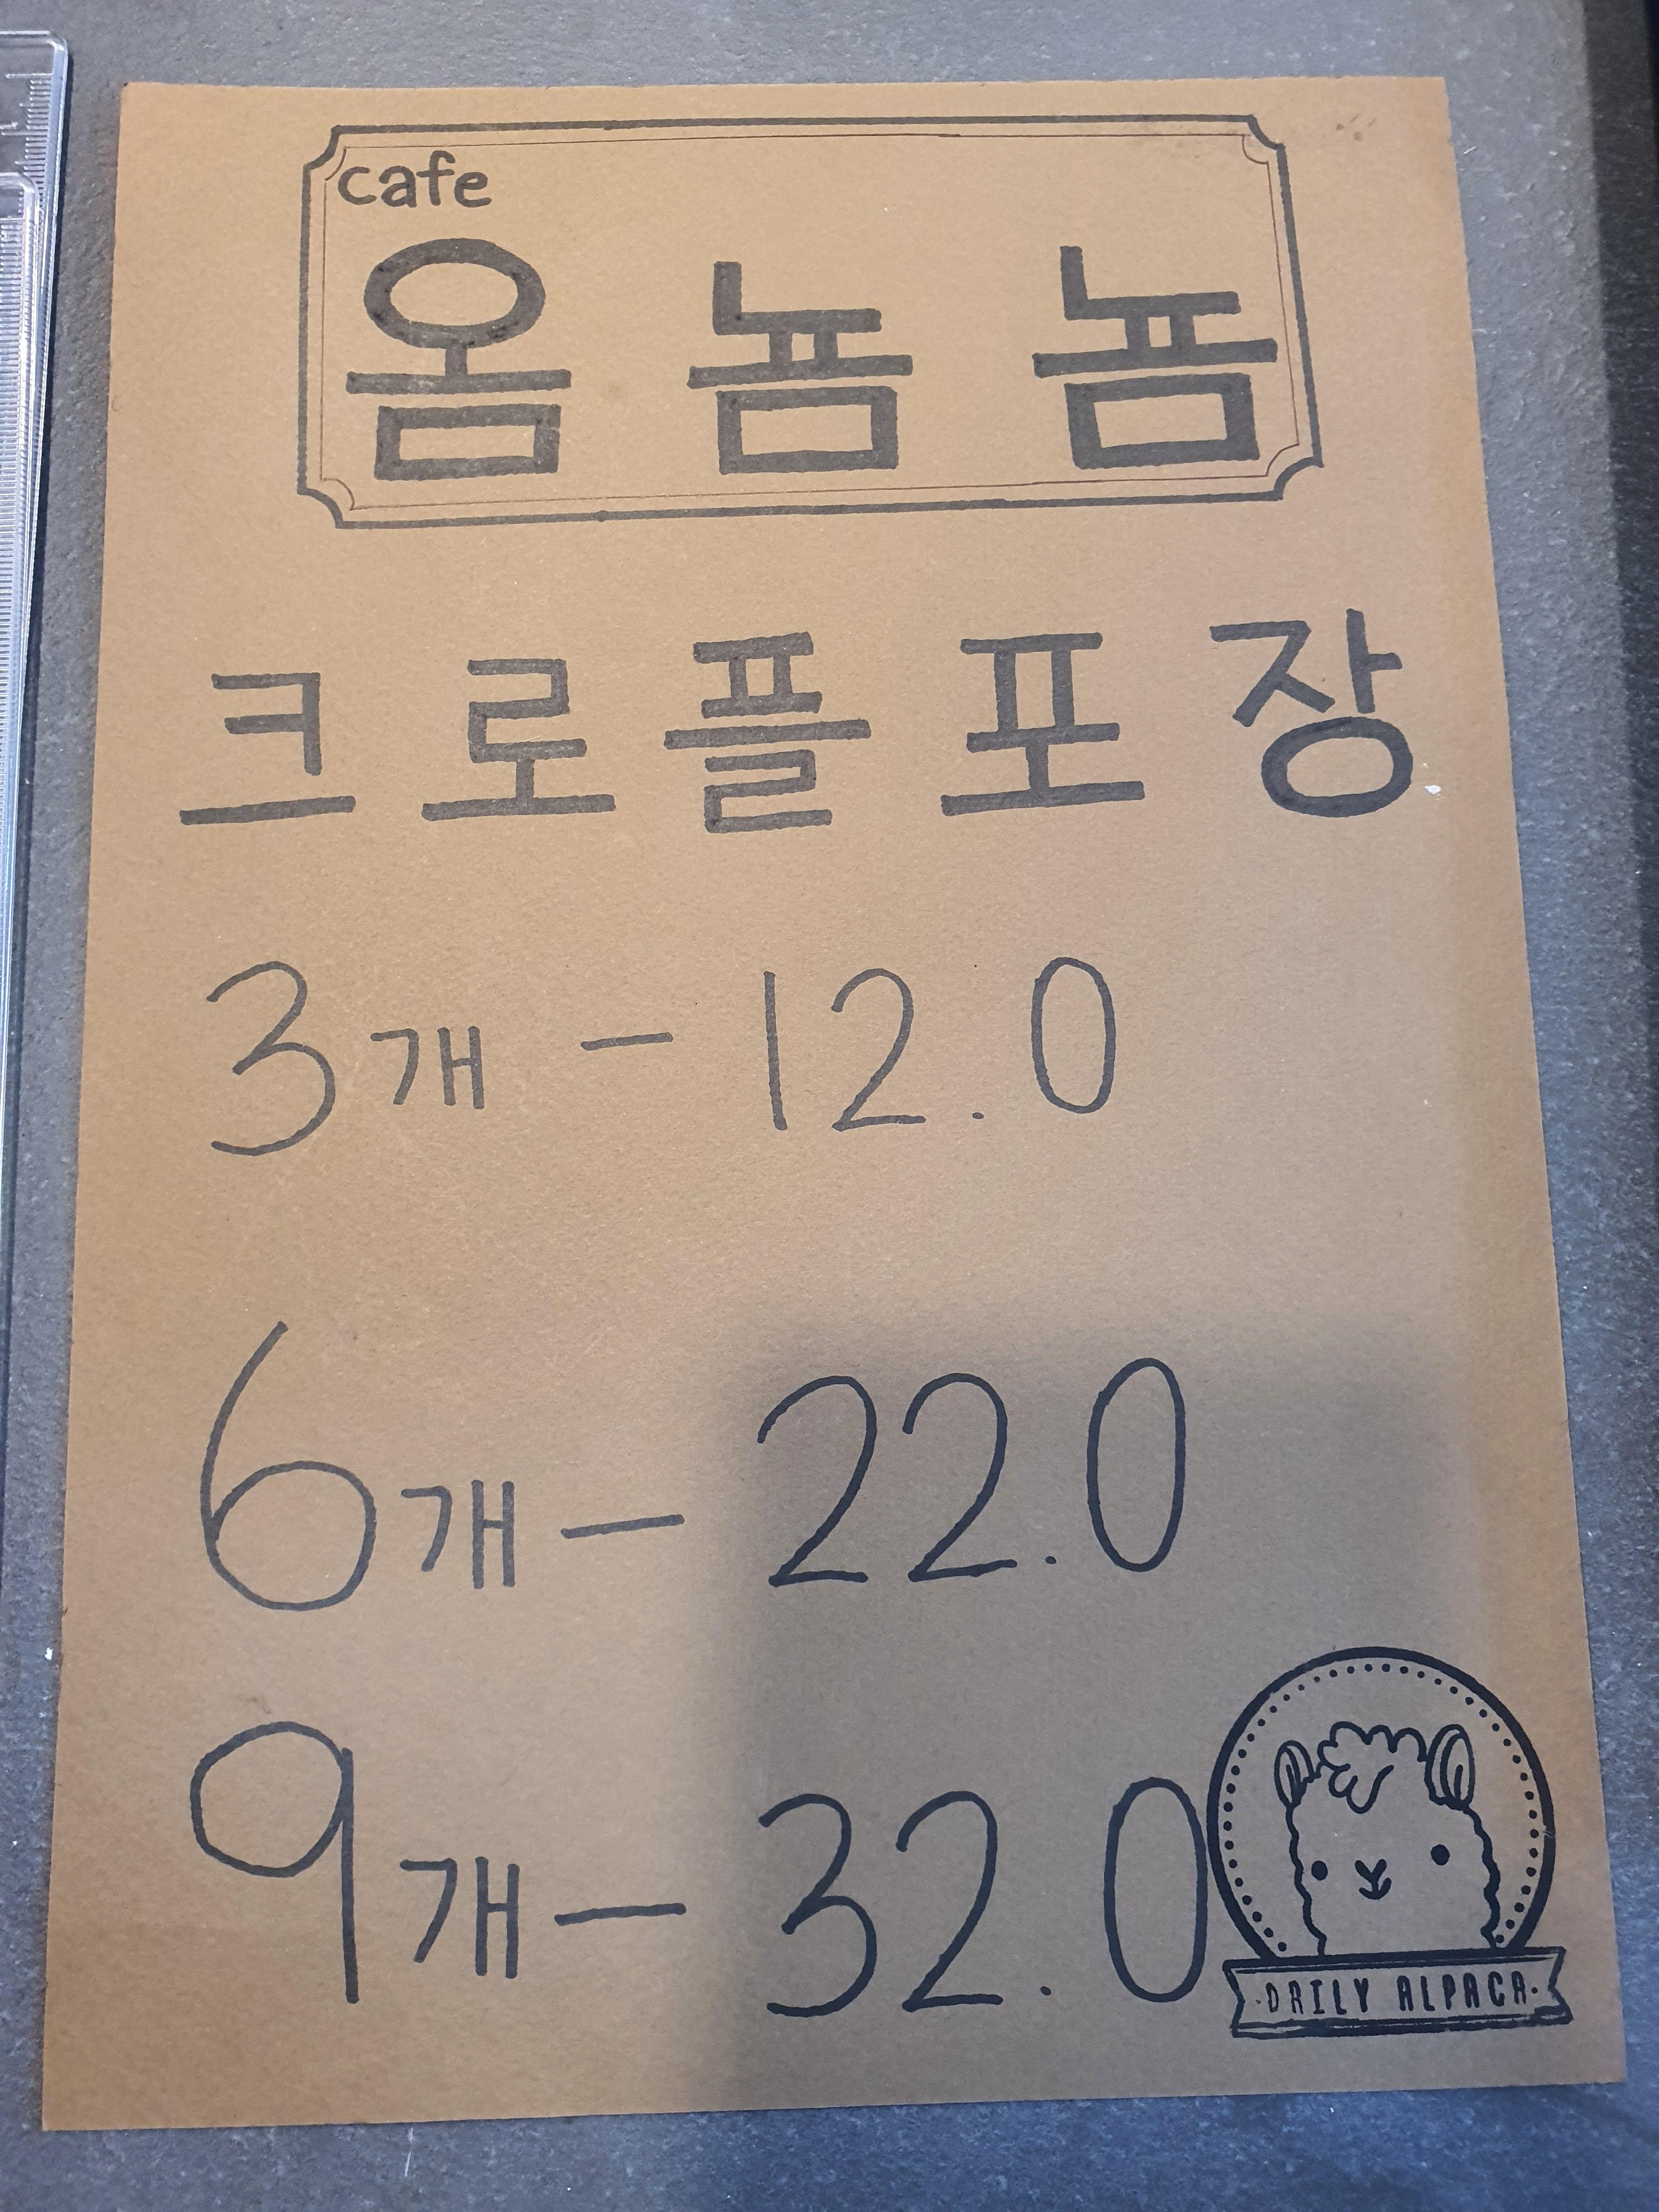 cafe
옴뇸뇸
크로플포장
3개 - 12.0
6개 - 22.0
9개 - 32.0
·DAILY ALPACA·